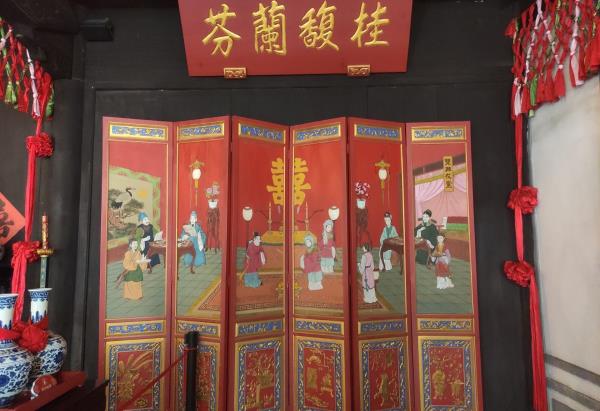 桂馥蘭芬
囍